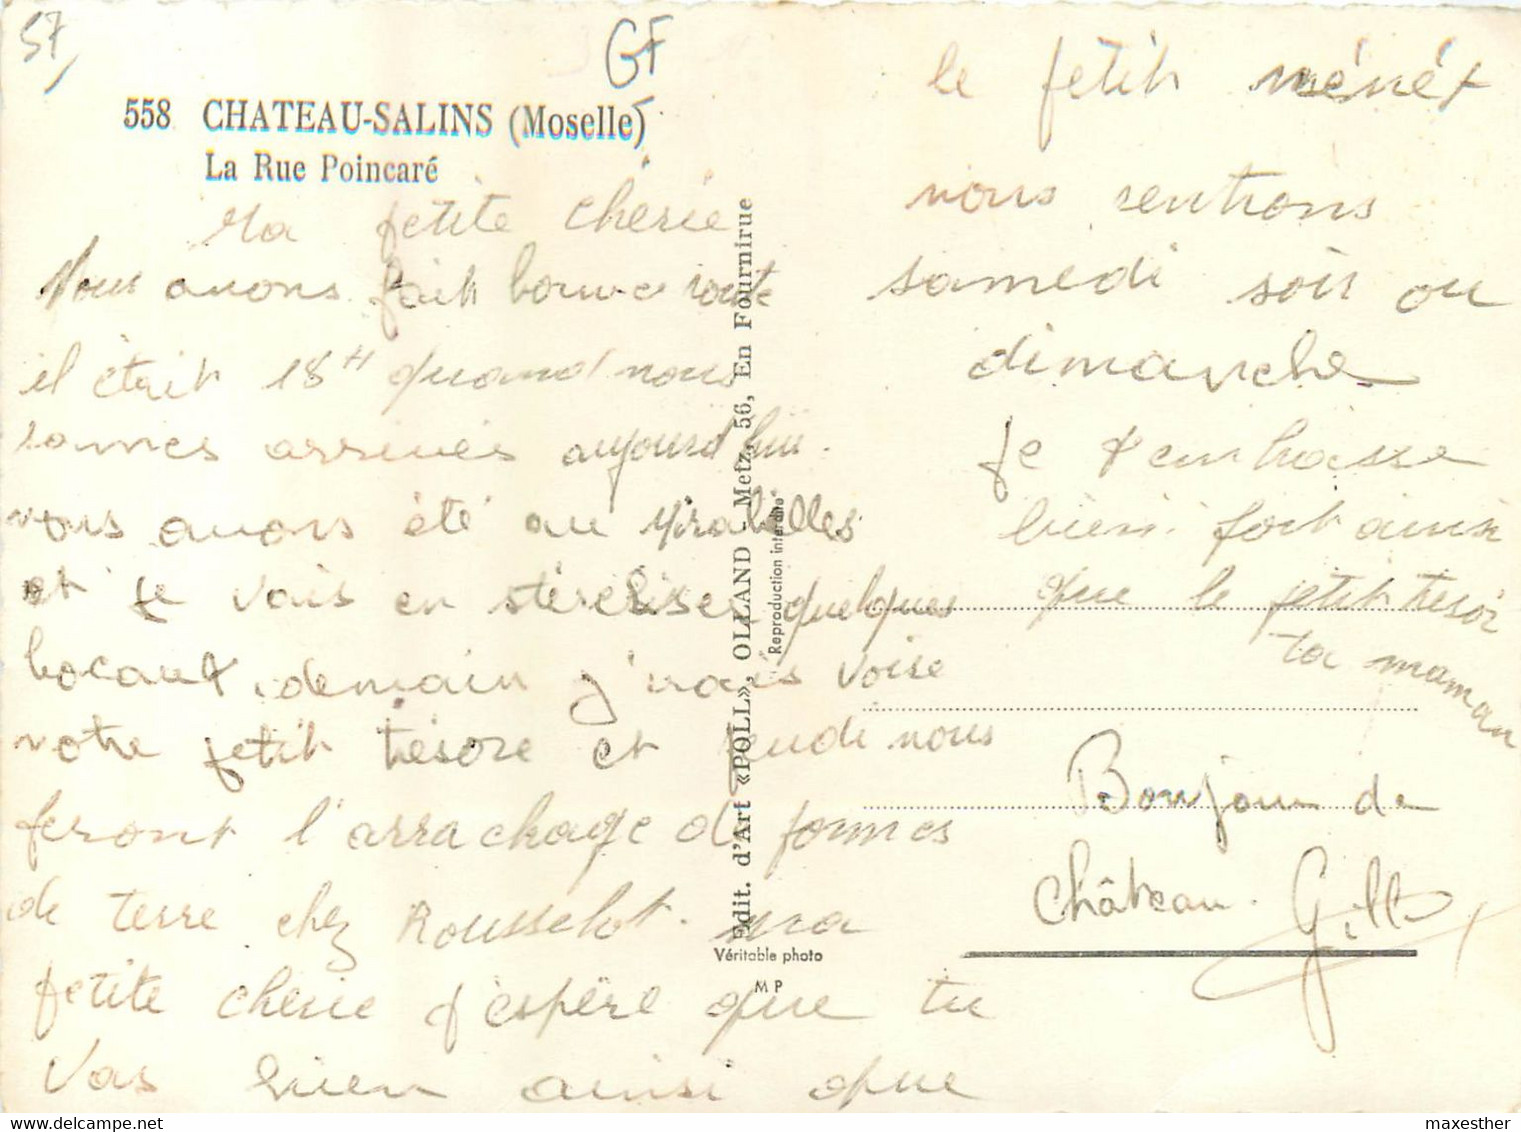 57
GF
558 CHATEAU-SALINS (Moselle)
La Rue Poincaré
Ma petite chérie
Nous avons fait bonne route
il était 18H quand nous
sommes arrivés aujourd'hui.
nous avons été au Mirabelles
et je vais en stereliser quelques
bocaux. demain j'irais voire
votre petit trésore et jeudi nous
feront l'arrachage de pommes
de terre chez Rousselot. ma
petite cherie j'espère que tu
vas bien ainsi que
Edit. d'Art «POLL», OLLAND - Metz, 56, En Fournirue
Reproduction interdite
Véritable photo
M P
le petit
nous rentrons
samedi soir ou
dimanche
je t'embrasse
bien fort ainsi
que le petit tresor
ta maman
Bonjour de
Château. Gilb
maxesther